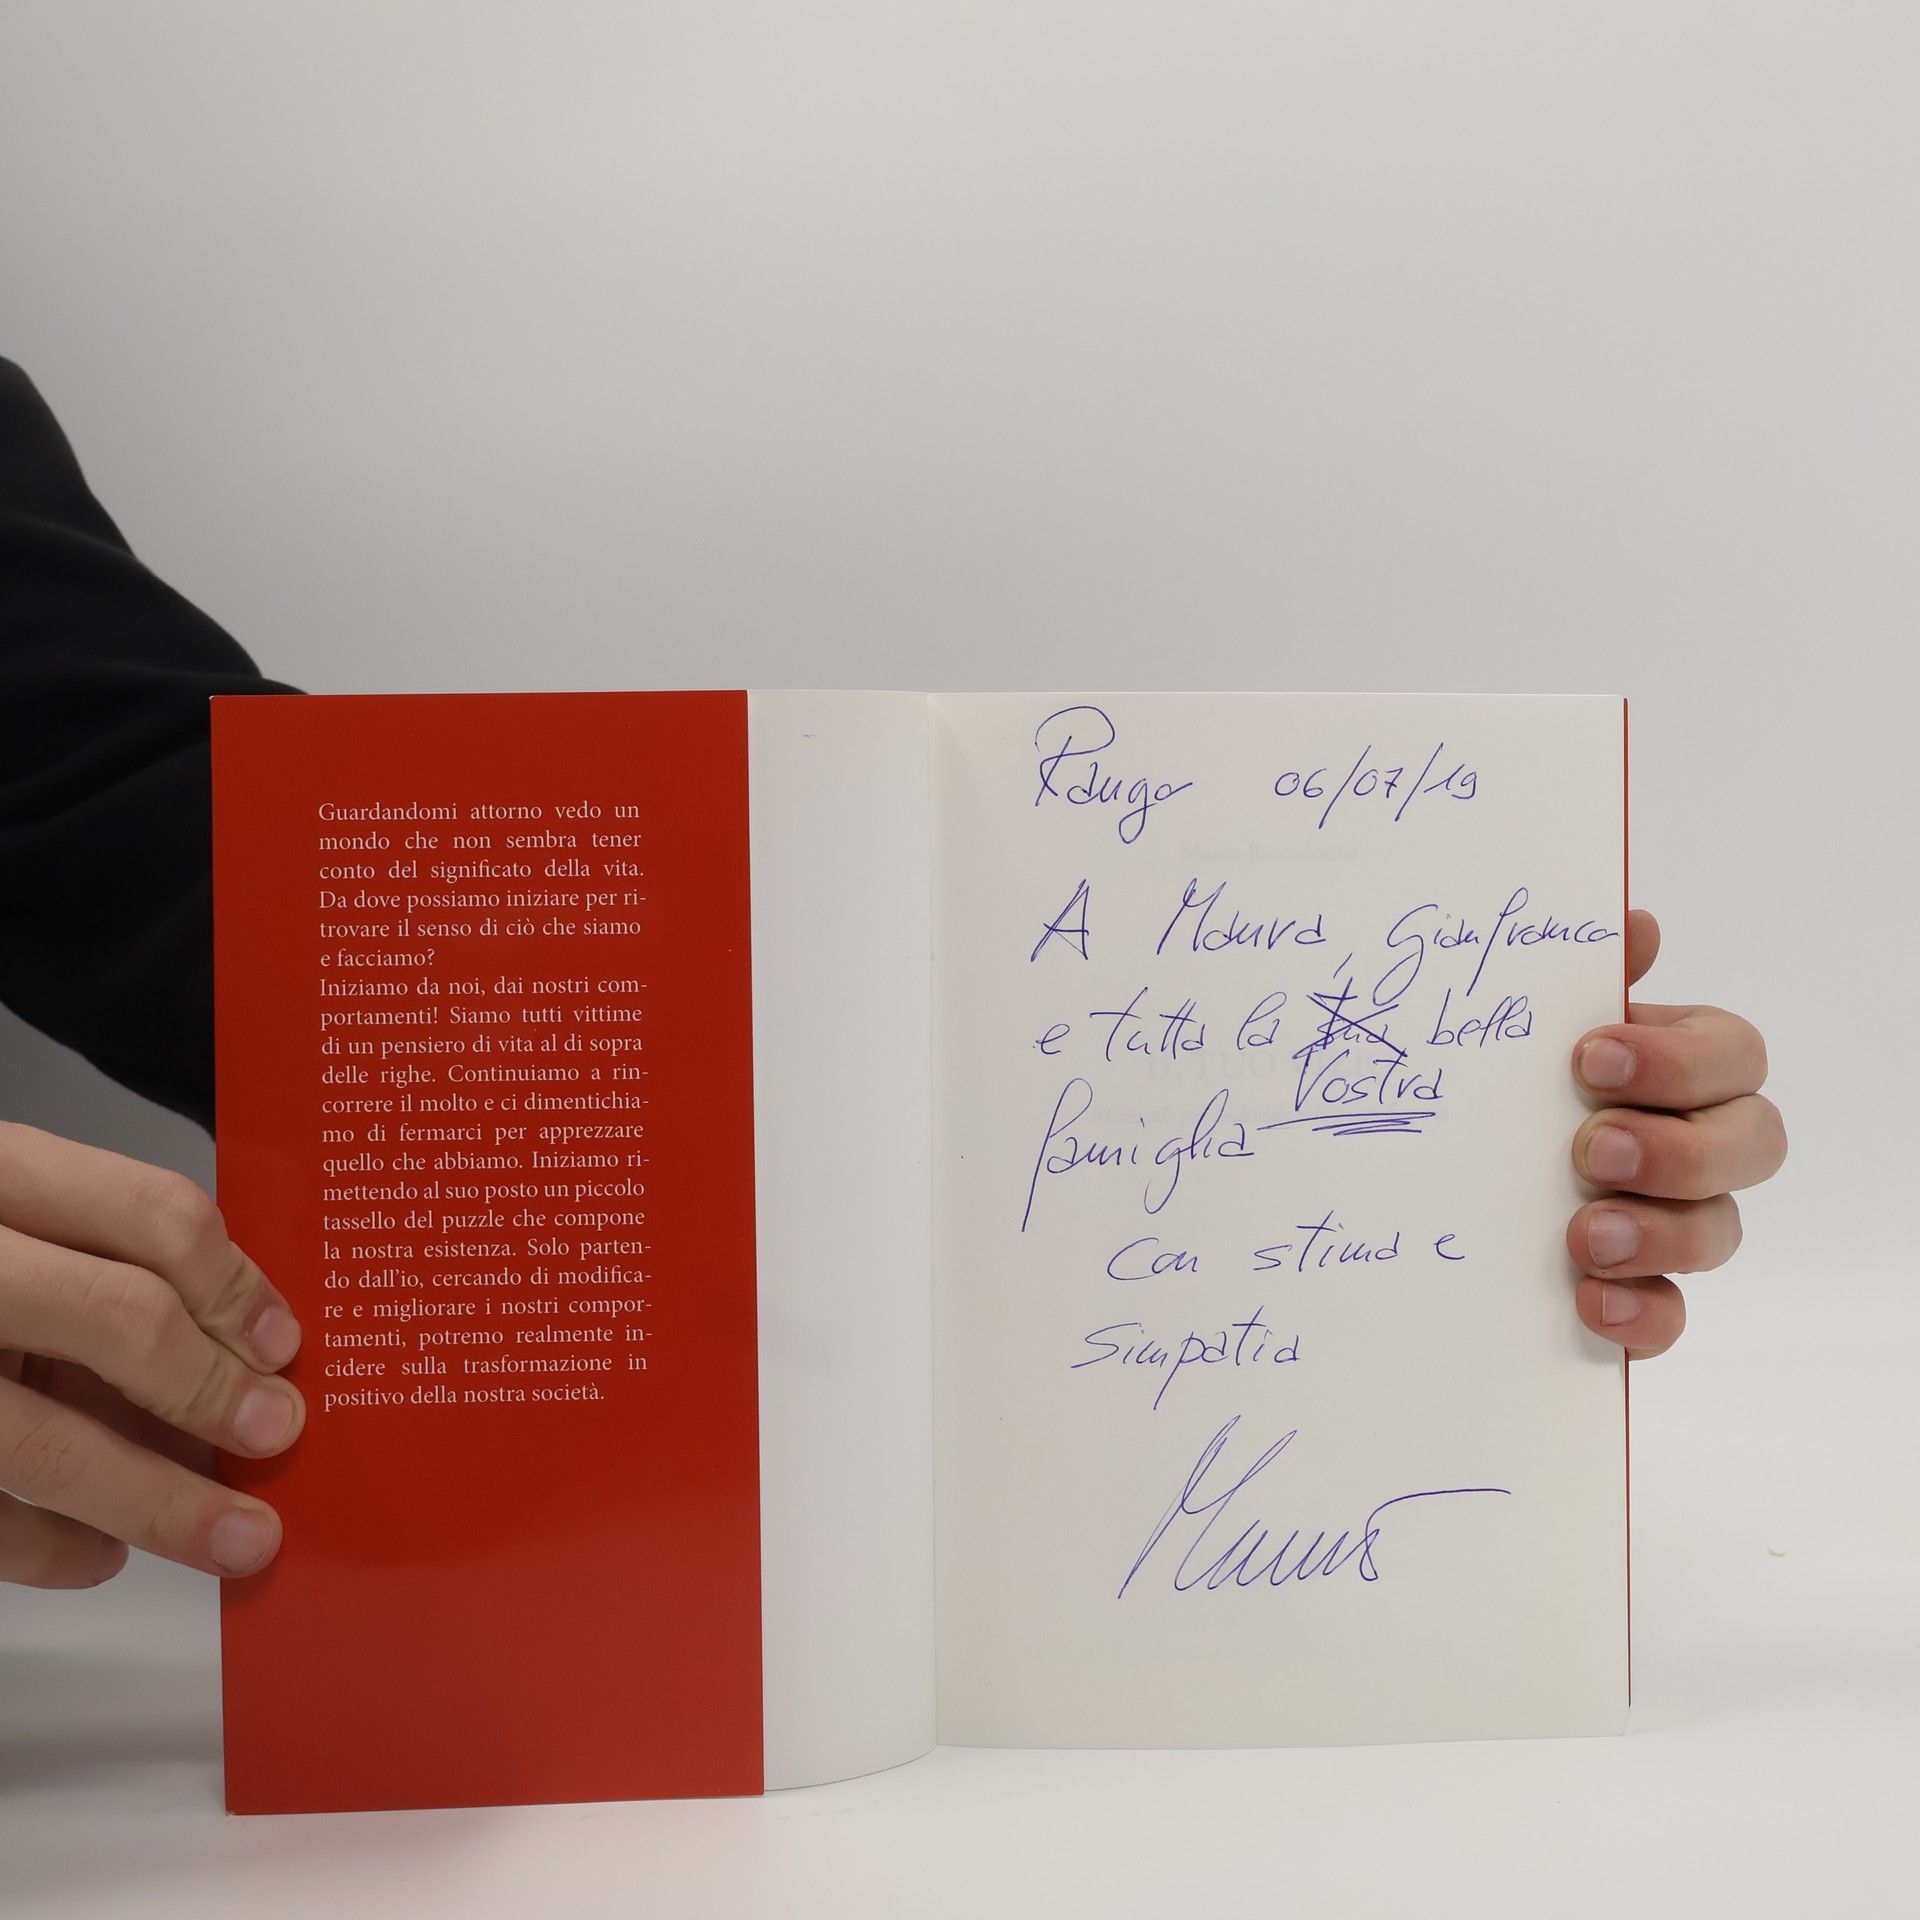 Guardandomi attorno vedo un
mondo che non sembra tener
conto del significato della vita.
Da dove possiamo iniziare per ri-
trovare il senso di ciò che siamo
e facciamo?
Iniziamo da noi, dai nostri com-
portamenti! Siamo tutti vittime
di un pensiero di vita al di sopra
delle righe. Continuiamo a rin-
correre il molto e ci dimentichia-
mo di fermarci per apprezzare
quello che abbiamo. Iniziamo ri-
mettendo al suo posto un piccolo
tassello del puzzle che compone
la nostra esistenza. Solo parten-
do dall'io, cercando di modifica-
re e migliorare i nostri compor-
tamenti, potremo realmente in-
cidere sulla trasformazione in
positivo della nostra società.
Rango 06/07/19
Marco Riccadonna
A Maura, Gianfranco
e tutta la bella
IL TUO
Vostra
famiglia
con stima e
simpatia